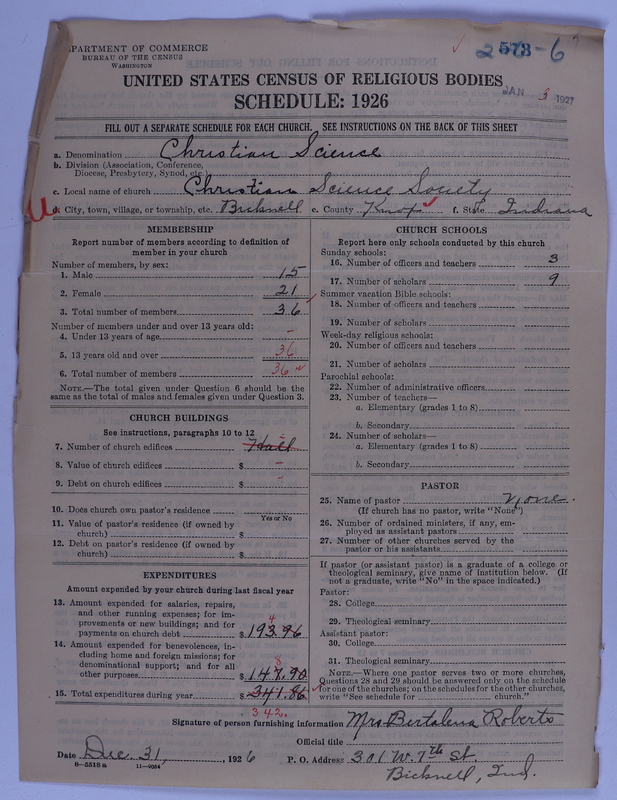 DEPARTMENT OF COMMERCE
BUREAU OF THE CENSUS
WASHINGTON
2 573-6
UNITED STATES CENSUS OF RELIGIOUS BODIES
SCHEDULE: 1926
JAN 3 1927
FILL OUT A SEPARATE SCHEDULE FOR EACH CHURCH. SEE INSTRUCTIONS ON THE BACK OF THIS SHEET
a. Denomination Christian Science
b. Division (Association, Conference, Diocese, Presbytery, Synod, etc.)
c. Local name of church Christian Science Society
d. City, town, village, or township, etc. Bicknell e. County Knox f. State Indiana
MEMBERSHIP
Report number of members according to definition of
member in your church
Number of members, by sex:
1. Male 15
2. Female 21
3. Total number of members 36
Number of members under and over 13 years old:
4. Under 13 years of age -
5. 13 years old and over 36
6. Total number of members 36
NOTE.—The total given under Question 6 should be the
same as the total of males and females given under Question 3.
CHURCH BUILDINGS
See instructions, paragraphs 10 to 12
7. Number of church edifices Hall
8. Value of church edifices $ -
9. Debt on church edifices $ -
10. Does church own pastor's residence
Yes or No
11. Value of pastor's residence (if owned by
church) $
12. Debt on pastor's residence (if owned by
church) $
EXPENDITURES
Amount expended by your church during last fiscal year
13. Amount expended for salaries, repairs,
and other running expenses; for im-
provements or new buildings; and for
payments on church debt $ 193.96
4
14. Amount expended for benevolences, in-
cluding home and foreign missions; for
denominational support; and for all
other purposes $ 147.90
8
15. Total expenditures during year $ 341.86
342.
CHURCH SCHOOLS
Report here only schools conducted by this church
Sunday schools:
16. Number of officers and teachers 3
17. Number of scholars 9
Summer vacation Bible schools:
18. Number of officers and teachers
19. Number of scholars
Week-day religious schools:
20. Number of officers and teachers
21. Number of scholars
Parochial schools:
22. Number of administrative officers
23. Number of teachers—
a. Elementary (grades 1 to 8)
b. Secondary
24. Number of scholars—
a. Elementary (grades 1 to 8)
b. Secondary
PASTOR
25. Name of pastor None.
(If church has no pastor, write "None")
26. Number of ordained ministers, if any, em-
ployed as assistant pastors
27. Number of other churches served by the
pastor or his assistants
If pastor (or assistant pastor) is a graduate of a college or
theological seminary, give name of institution below. (If
not a graduate, write "No" in the space indicated.)
Pastor:
28. College
29. Theological seminary
Assistant pastor:
30. College
31. Theological seminary
NOTE.—Where one pastor serves two or more churches,
Questions 28 and 29 should be answered only on the schedule
for one of the churches; on the schedules for the other churches,
write "See schedule for church."
Signature of person furnishing information Mrs Bertalena Roberts
Official title
Date Dec. 31, , 1926 P. O. Address 301 W. 7th St.
8—5518a 11—9034
Bicknell, Ind.